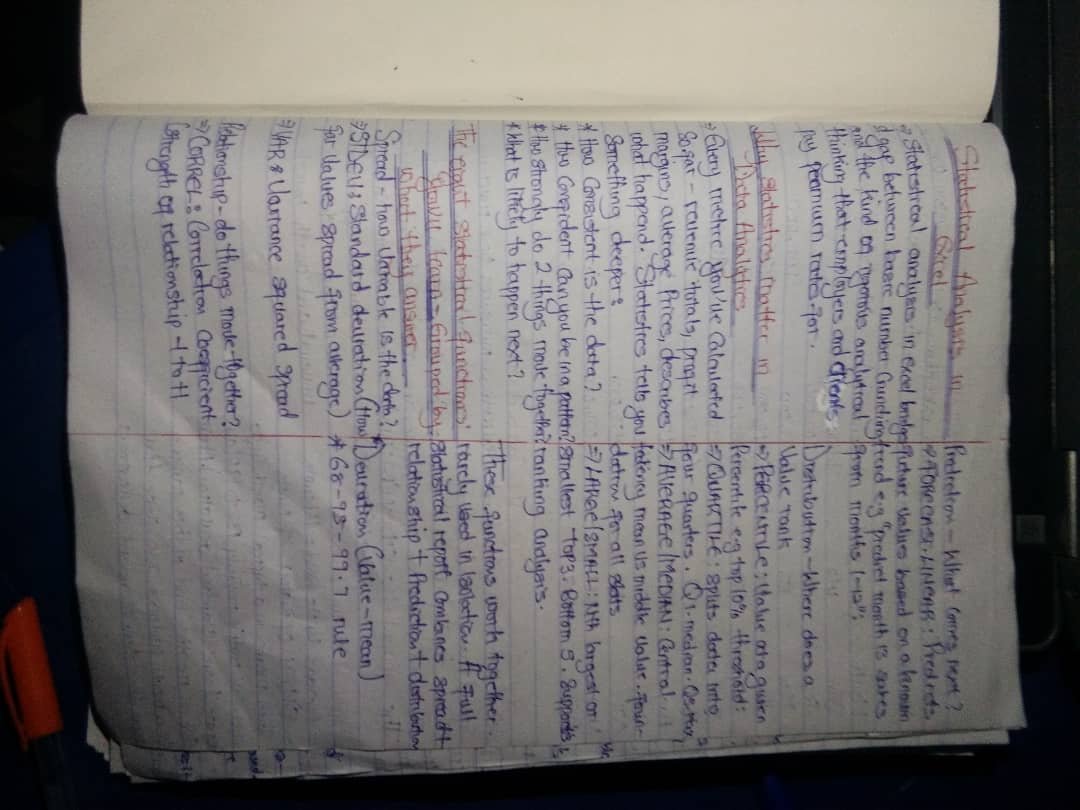 Statistical Analysis in
Excel
⇒ Statistical analysis in excel bridge
d gap between basic number crunching
and the kind of rigorous analytical
thinking that employers and clients
pay premium rates for.
Why statistics matter in
Data Analytics
⇒ Every metric you've calculated
so far - revenue totals, profit
margins, average prices, describes
what happend. Statistics tells you
something deeper:
* How consistent is the data?
* How confident can you be in a pattern?
* How strongly do 2 things move together?
* What is likely to happen next?
The eight statistical functions
you'll learn - Grouped by
what they answer
Spread - how variable is the data?
⇒ STDEV: Standard deviation (How
far values spread from average)
⇒ VAR: Variance squared spread
Relationship - do things move together?
⇒ CORREL: Correlation Coefficient
(strength of relationship -1 to +1
Prediction - What comes next?
⇒ FORECAST.LINEAR: Predicts
future values based on a known
trend eg "predict month 13 sales
from months 1-12";
Distribution - Where does a
value rank
⇒ PERCENTILE: Value at a given
Percentile eg top 10% threshold:
⇒ QUARTILE: splits data into
four quarters. Q1. median.
⇒ AVERAGE/MEDIAN: Central
taking mean vs middle value. foun-
dation for all stats
⇒ LARGE/SMALL: Nth largest or
smallest top 3. Bottom 5. supports
ranking analysis.
These functions work together.
rarely used in isolation. A full
statistical report combines spread +
relationship + Prediction + distribution
Deviation (value - mean)
* 68-95-99.7 rule